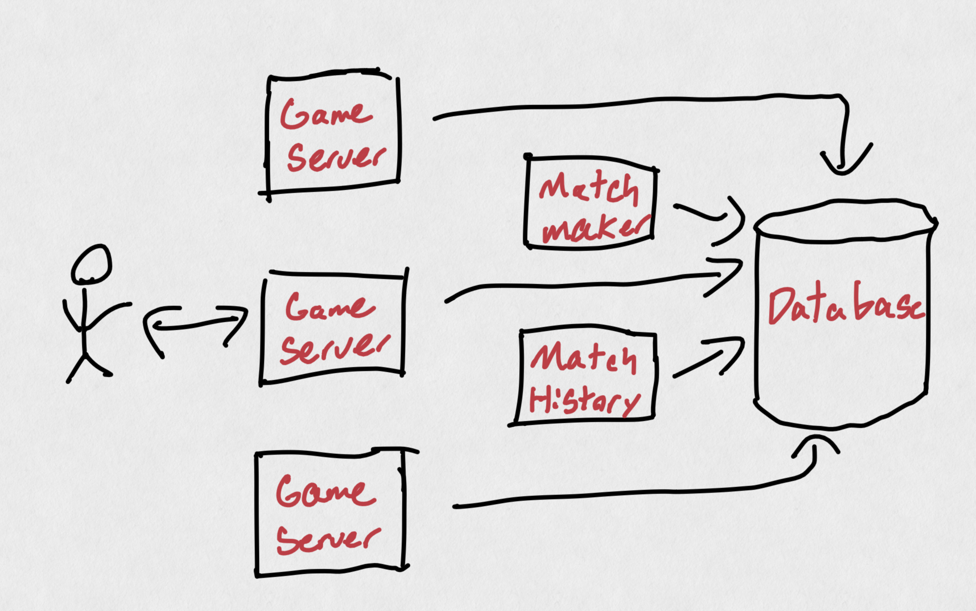 Game
Server
Match
maker
Game
Server
Database
Match
History
Game
Server